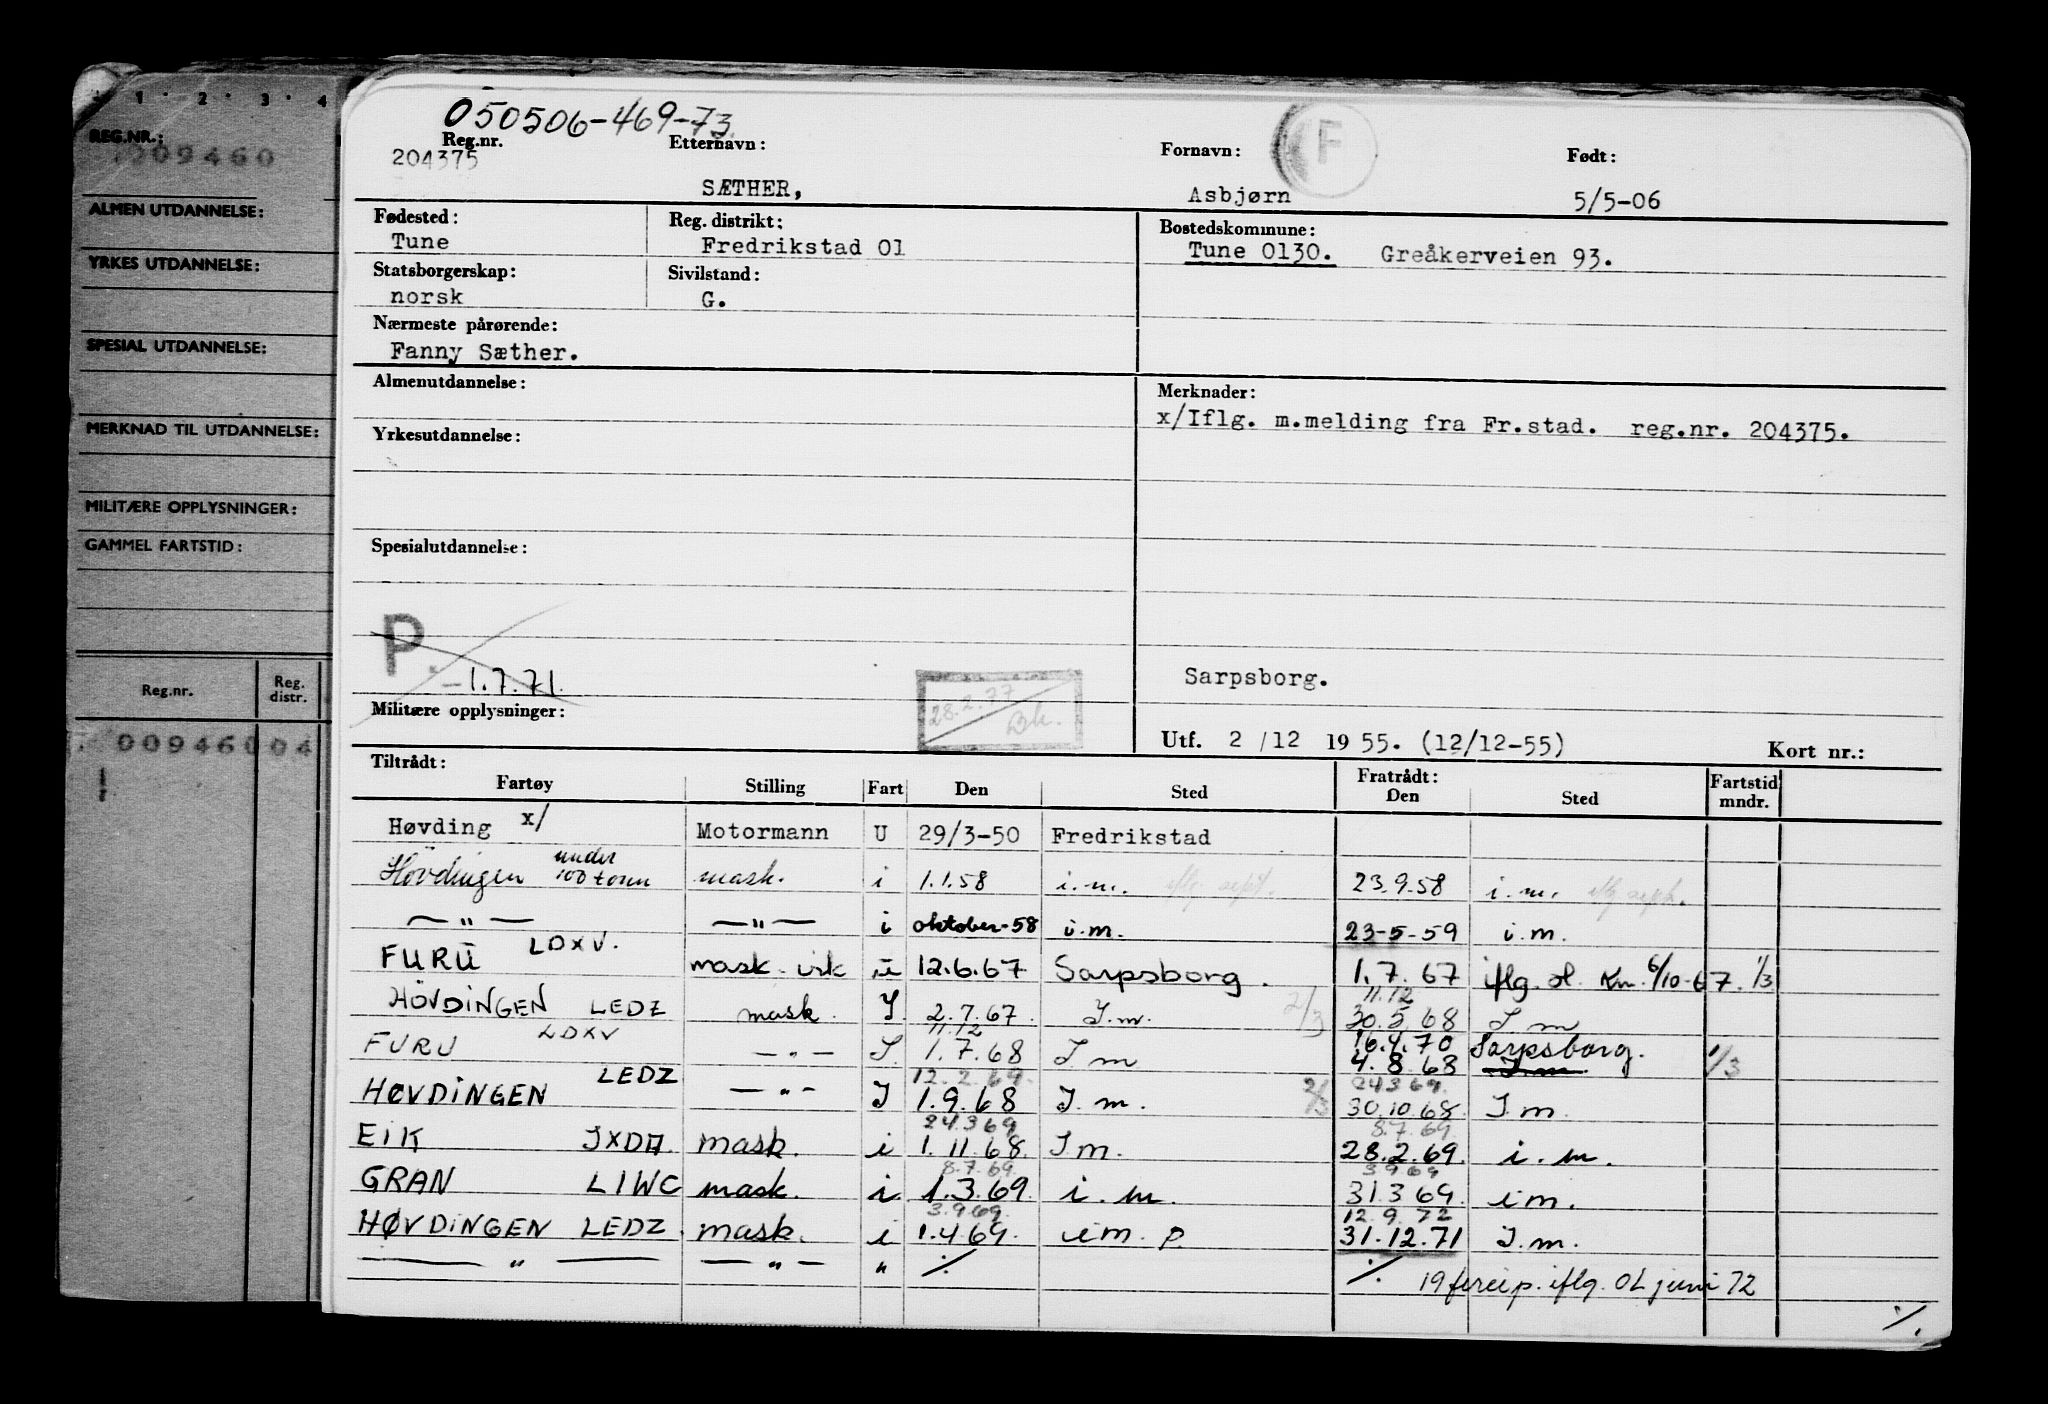 1 · 2 · 3 · 4
REG.NR.:
009460
ALMEN UTDANNELSE:
YRKES UTDANNELSE:
SPESIAL UTDANNELSE:
MERKNAD TIL UTDANNELSE:
MILITÆRE OPPLYSNINGER:
GAMMEL FARTSTID:
Reg.nr. Reg. distr.
009460 04
050506-469-73.
Reg.nr. Etternavn: Fornavn: F Født:
204375 SÆTHER, Asbjørn 5/5-06
Fødested: Reg. distrikt: Bostedskommune:
Tune Fredrikstad 01 Tune 0130. Greåkerveien 93.
Statsborgerskap: Sivilstand:
norsk G.
Nærmeste pårørende:
Fanny Sæther.
Almenutdannelse: Merknader:
x/Iflg. m.melding fra Fr.stad. reg.nr. 204375.
Yrkesutdannelse:
Spesialutdannelse:
P.
-1.7.71. Sarpsborg.
28.2.77 Bk.
Militære opplysninger: Utf. 2/12 1955. (12/12-55) Kort nr.:
Tiltrådt: Fratrådt: Fartstid
Fartøy Stilling Fart Den Sted Den Sted mndr.
Høvding x/ Motormann U 29/3-50 Fredrikstad
Hövdingen under 100 tonn mask. i 1.1.58 i.m. iflg. sept. 23.9.58 i.m.
— " — — " — i oktober-58 i.m. 23-5-59 i.m.
FURU LDXV. mask. 12.6.67 Sarpsborg. 1.7.67 iflg. 6/10-67. 1/3
11.12
HÖVDINGEN LEDZ mask. I. 2.7.67. I.m. 2/3 30.5.68 I.m
11.12 16.4.70 Sarpsborg.
FURU LDXV — " — I. 1.7.68 I m 4.8.68 I.m. 1/3
12.2.69. 24.3.69.
HØVDINGEN LEDZ — " — I 1.9.68 I.m. 2/3 30.10.68. I.m.
24.3.69 8.7.69
EIK JXDA. mask. i 1.11.68. I m. 28.2.69. i.m.
8.7.69. 3.9.69
GRAN LIWC mask. i. 1.3.69. i.m. 31.3.69. i m.
3.9.69. 12.9.72
HØVDINGEN LEDZ. mask. i 1.4.69. i m. p. 31.12.71 I.m.
— " — — " — " ./. ./. 19 iflg. OL juni 72
./.